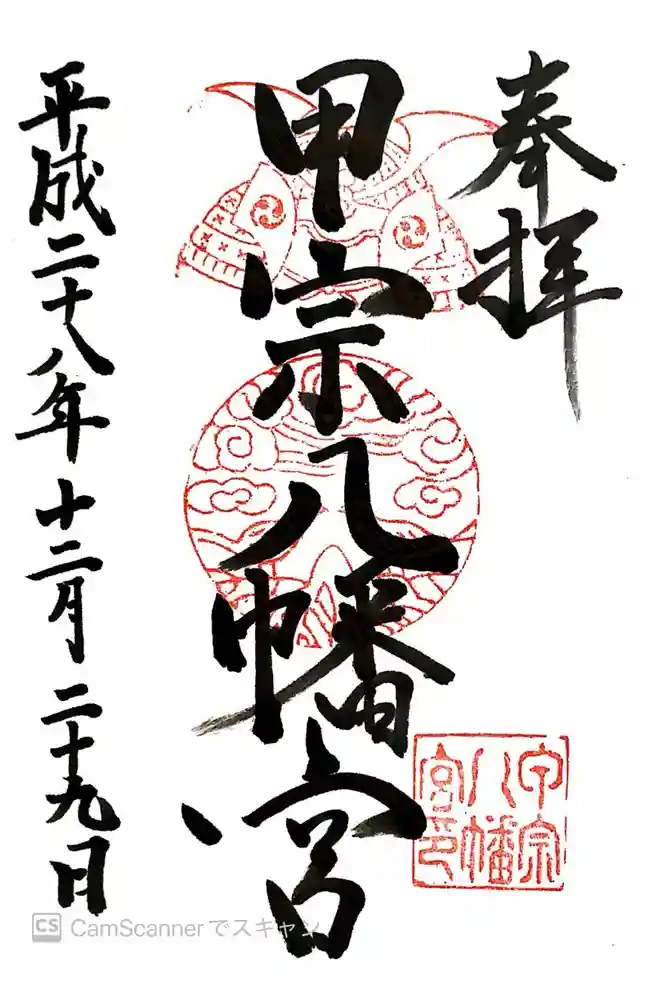 奉拝
甲宗八幡宮
甲宗
八幡
宮印
平成二十八年十二月二十九日
CS CamScannerでスキャン